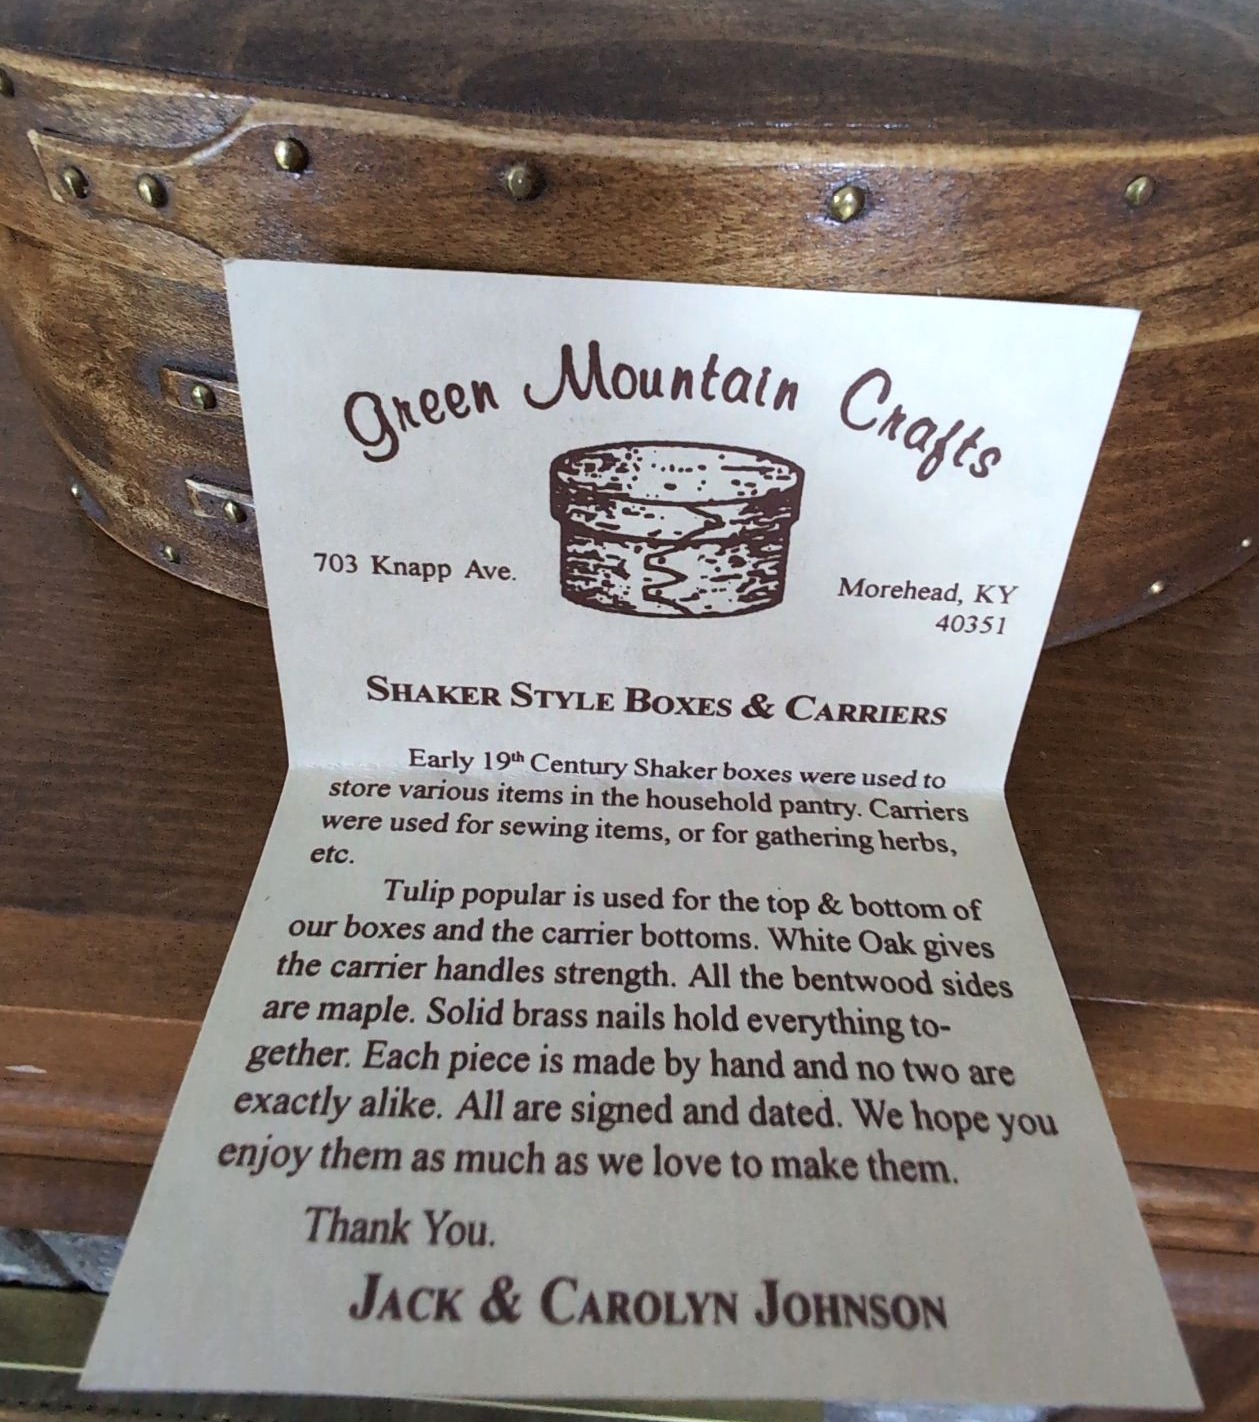 Green Mountain Crafts
703 Knapp Ave.
Morehead, KY
40351
SHAKER STYLE BOXES & CARRIERS
Early 19th Century Shaker boxes were used to
store various items in the household pantry. Carriers
were used for sewing items, or for gathering herbs,
etc.
Tulip popular is used for the top & bottom of
our boxes and the carrier bottoms. White Oak gives
the carrier handles strength. All the bentwood sides
are maple. Solid brass nails hold everything to-
gether. Each piece is made by hand and no two are
exactly alike. All are signed and dated. We hope you
enjoy them as much as we love to make them.
Thank You.
JACK & CAROLYN JOHNSON